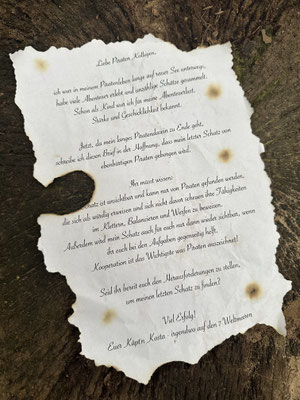 Liebe Piraten Kollegen,
ich war in meinem Piratenleben lange auf rauer See unterwegs,
habe viele Abenteuer erlebt und unzählige Schätze gesammelt.
Schon als Kind war ich für meine Abenteuerlust,
Stärke und Geschicklichkeit bekannt.
Jetzt, da mein langes Piratendasein zu Ende geht,
schreibe ich diesen Brief in der Hoffnung, dass mein letzter Schatz von
ebenbürtigen Piraten geborgen wird.
Ihr müsst wissen:
Schatz ist unsichtbar und kann nur von Piraten gefunden werden,
die sich als würdig erweisen und sich nicht davor scheuen ihre Fähigkeiten
im Klettern, Balancieren und Werfen zu beweisen.
Außerdem wird mein Schatz auch für euch nur dann wieder sichtbar, wenn
ihr euch bei den Aufgaben gegenseitig helft.
Kooperation ist das Wichtigste was Piraten auszeichnet!
Seid ihr bereit euch den Herausforderungen zu stellen,
um meinen letzten Schatz zu finden?
Viel Erfolg!
Euer Käpt'n Karta - irgendwo auf den 7 Weltmeeren